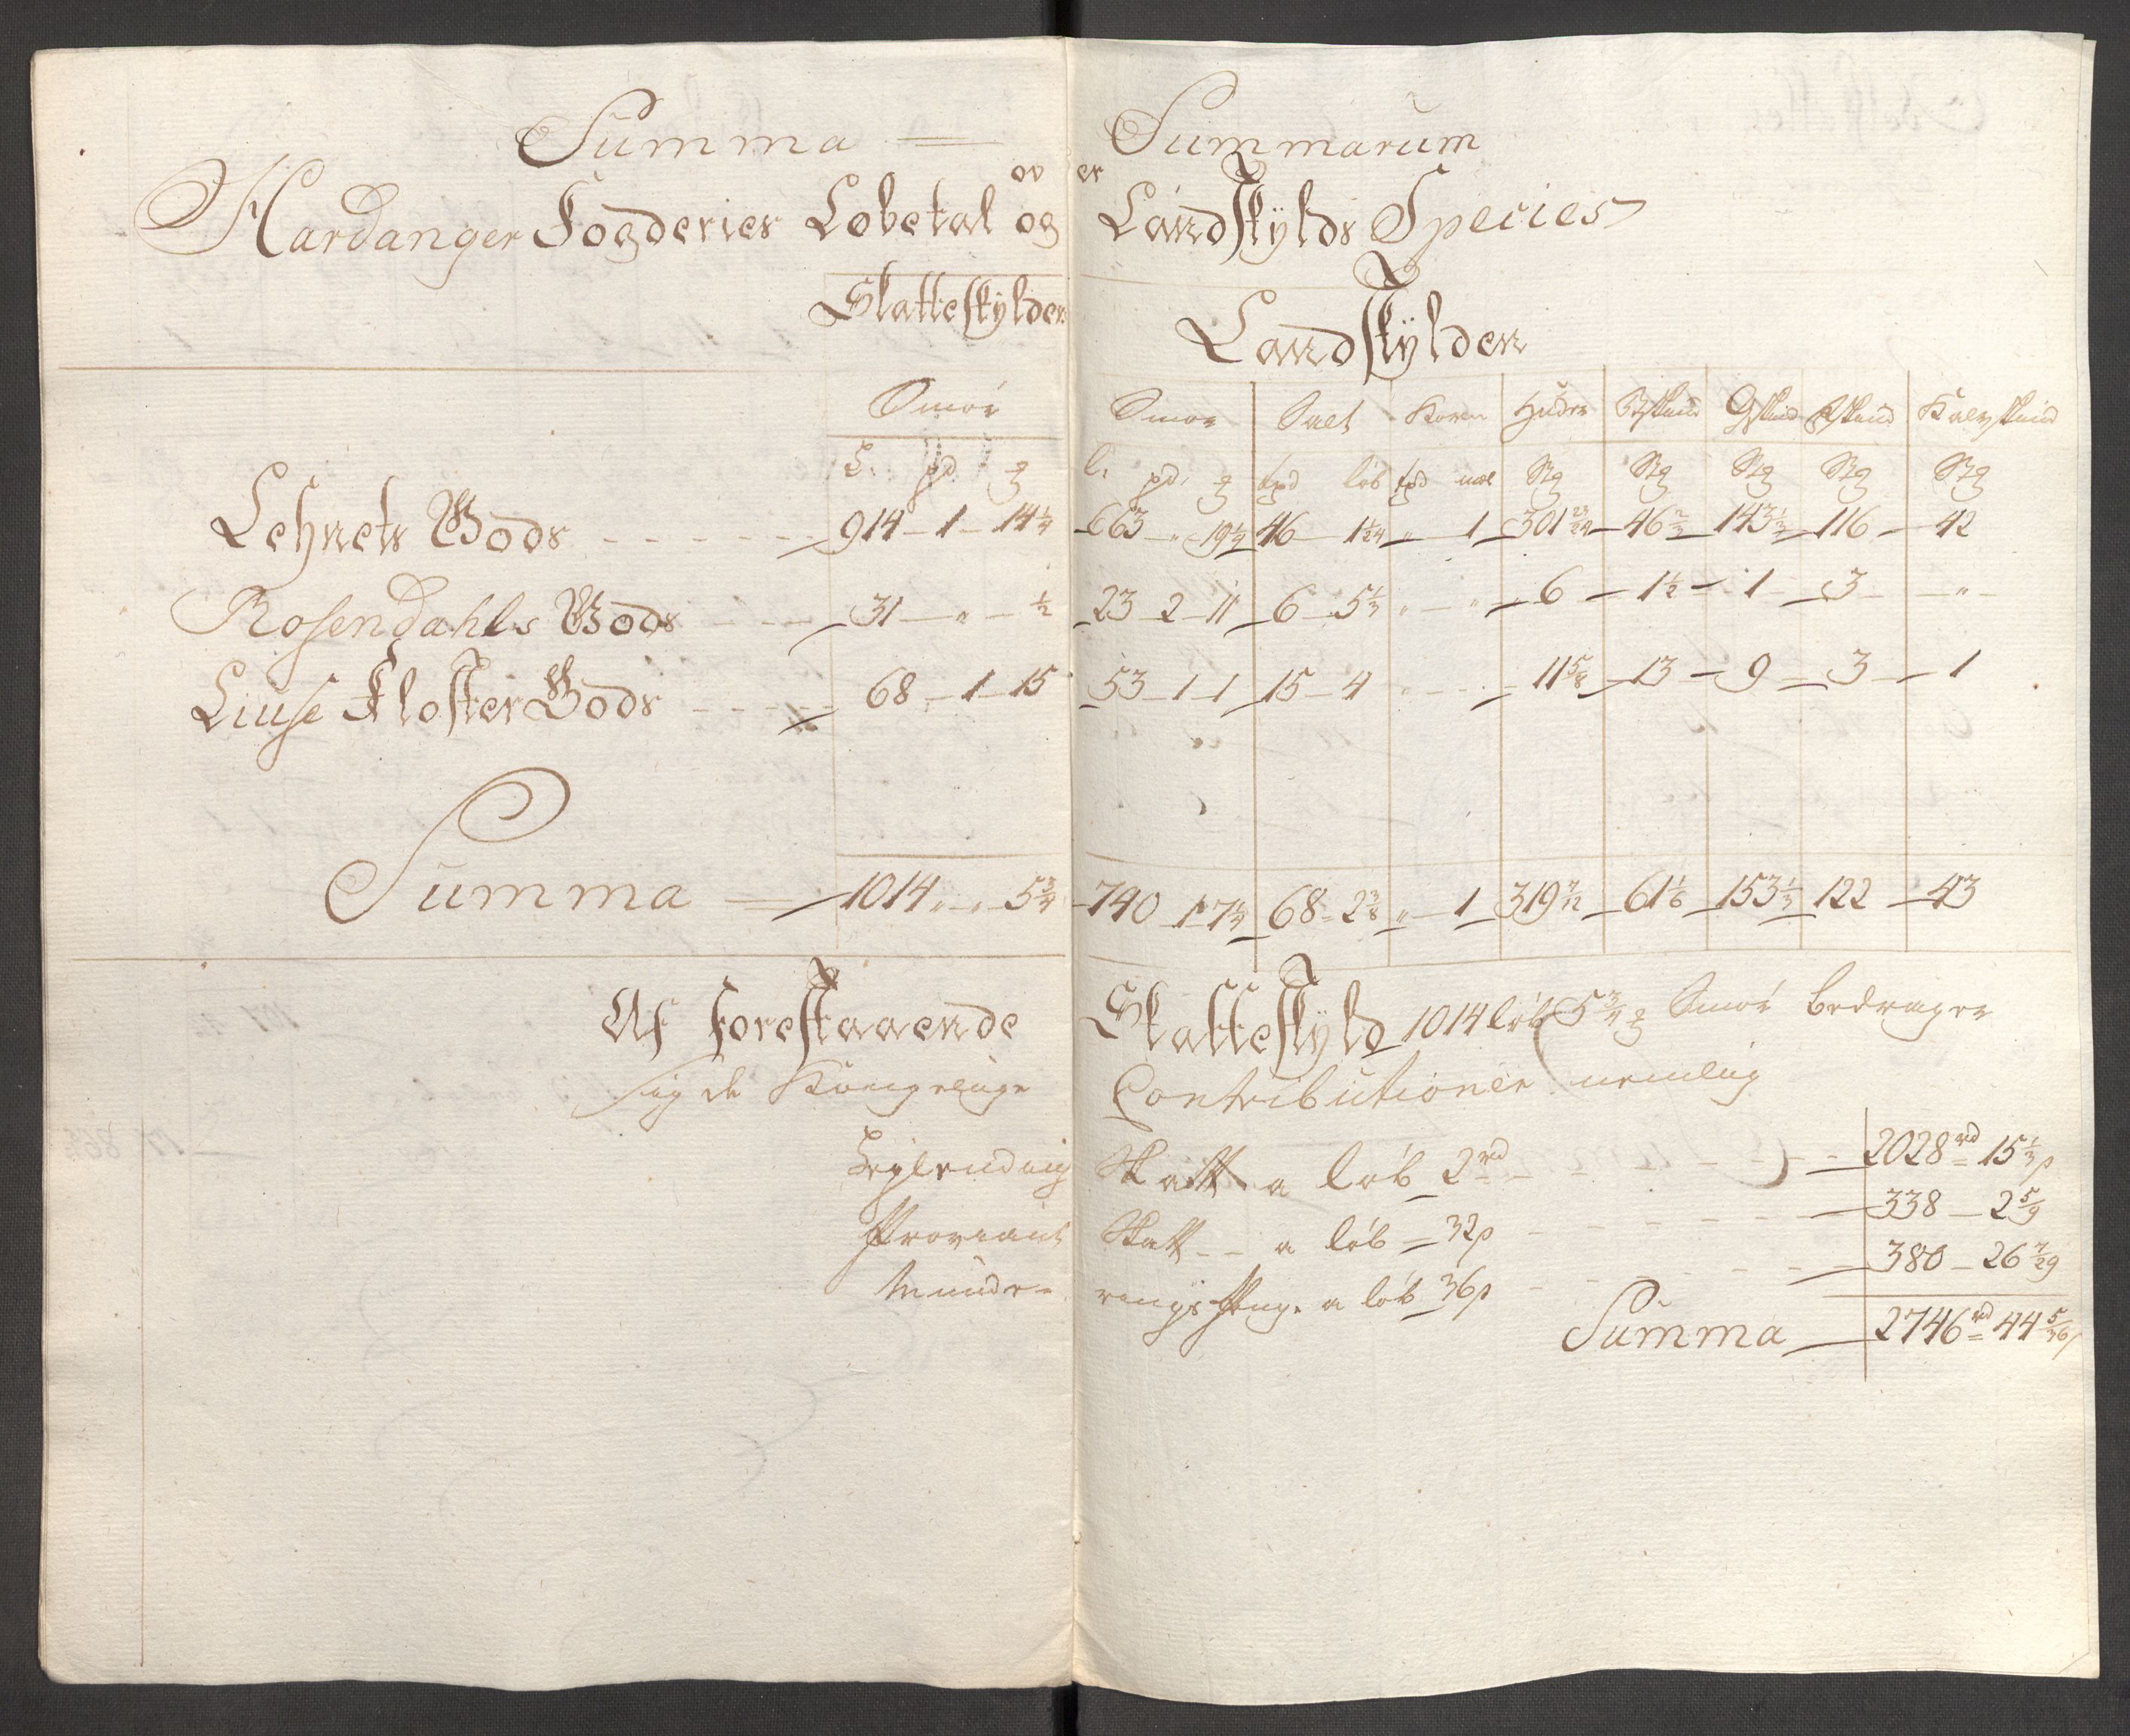 Summa Summarum
over
Hardanger Fogderies Lobetal og Landskylds Species
Skatteskylden Landskylden
Smör Smör Salt Korn Huder Bskind Gskind Kskind Kalvskind
L. pd ℔ l. pd. ℔ tpd löb tpd mæl Stg Stg Stg Stg Stg
Lehnets Gods 914 - 1 - 14 1/4 663 - " - 19 1/4 46 1 1/24 " 1 301 23/24 46 2/3 143 1/3 116 42
Rosendahls Gods 31 - " - 1/2 23 2 11 6 5 1/3 " " 6 1 1/2 1 3 "
Liuse Kloster Gods 68 - 1 - 15 53 1 1 15 - 4 11 5/8 13 9 3 1
Summa 1014 " " 5 3/4 740 1 7 1/4 68 - 2 3/8 " 1 319 7/12 61 1/6 153 1/3 122 43
Af Forestaaende Skatteskyld 1014 löb 5 3/4 ℔ Smör bedrager
sig de Kongelige Contributioner nemlig
Leylendning Skatt a löb 2 rd 2028 rd 15 1/3 p
Proviant Skatt a löb 32 p 338 - 2 5/9
Munderings Penge a löb 36 p 380 - 26 7/29
Summa 2746 rd 44 5/36 p